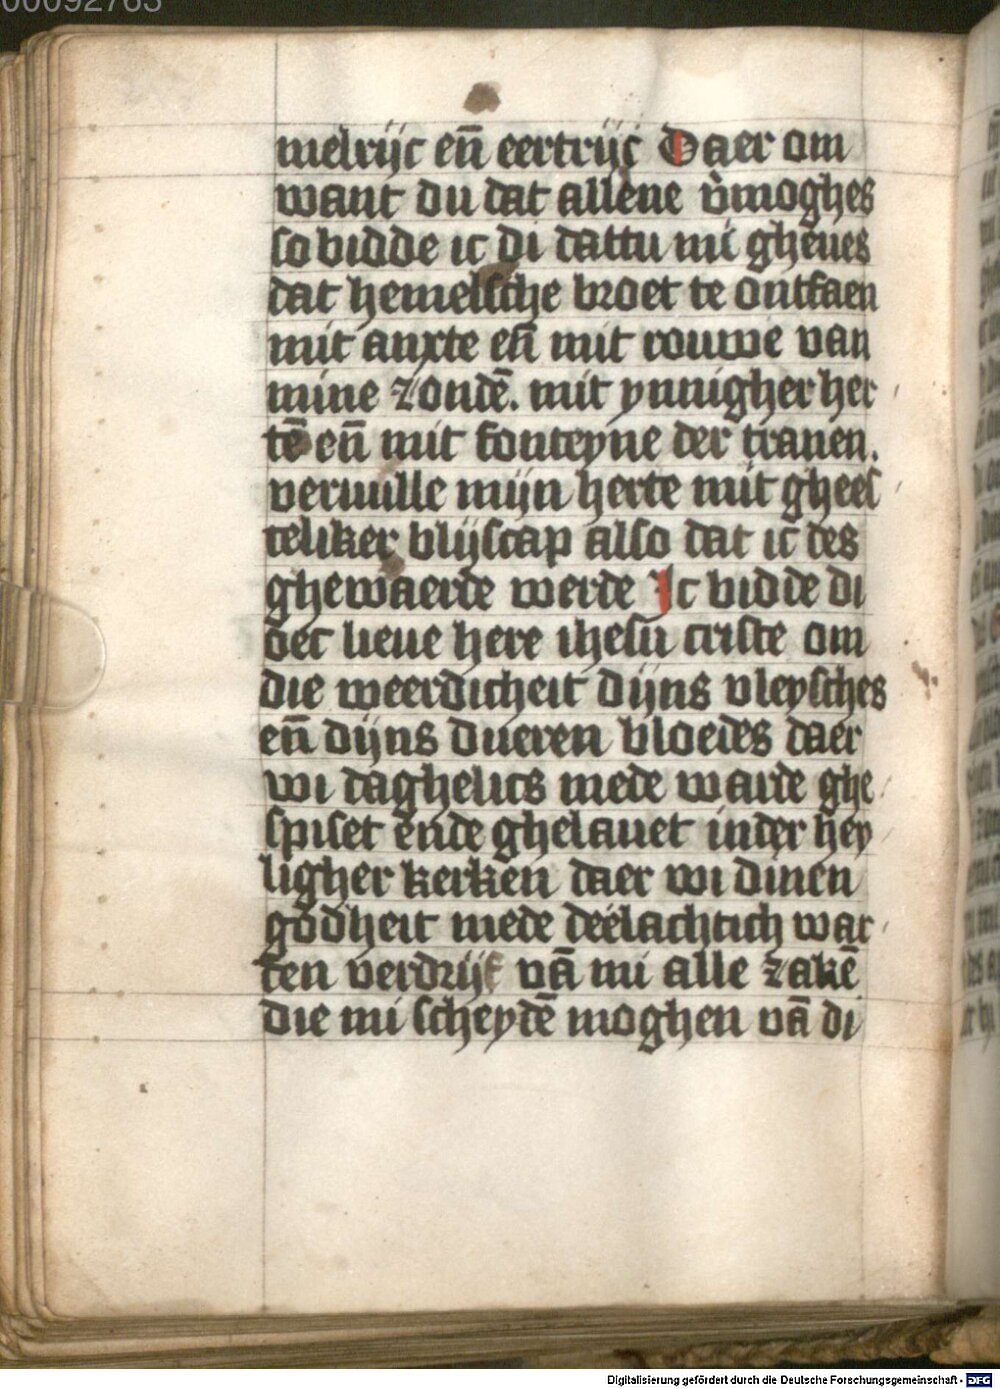 00092763
melrijc en̄ eertrijc Daer om
want du dat allene v̉moghes
so bidde ic di dattu mi gheues
dat hemelsche broet te ontfaen
mit anxte en̄ mit rouwe van
mine zondē. mit ynnigher her
tē en̄ mit fonteyne der tranen.
veruulle mijn herte mit ghees
teliker blijscap also dat ic des
ghewaerde werde Ic bidde di
oec lieue here ihesu criste om
die weerdicheit dijns vleysches
en̄ dijns dueren bloedes daer
wi daghelics mede warde ghe
spiset ende ghelauet inder hey
ligher kerken daer wi dinen
godheit mede deelachtich war
ten verdrijf vā mi alle zakē
die mi scheydē moghen vā di
Digitalisierung gefördert durch die Deutsche Forschungsgemeinschaft - DFG